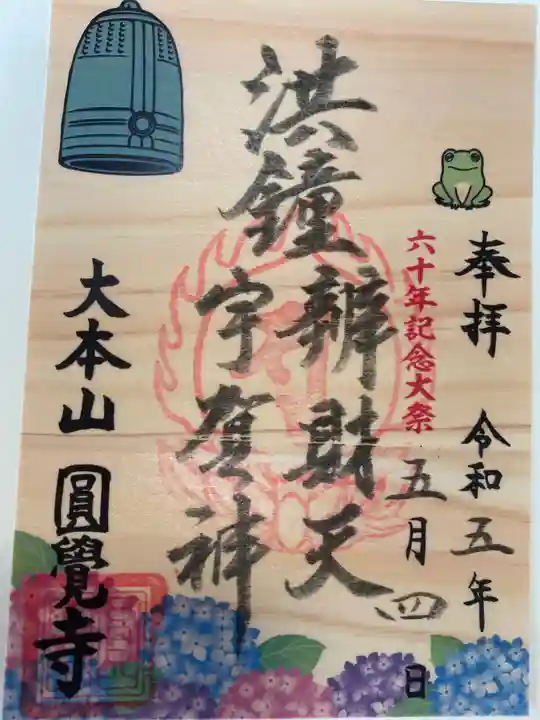 奉拝 令和五年
五月四日
六十年記念大祭
洪鐘辨財天
宇賀神
大本山 圓覺寺